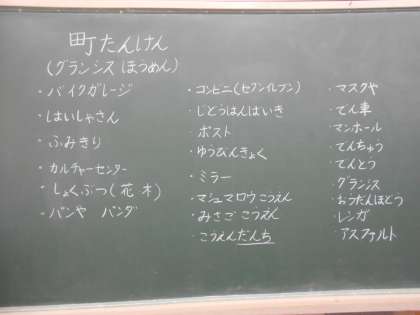 町たんけん
(グランシス ほうめん)
・バイクガレージ
・はいしゃさん
・ふみきり
・カルチャーセンター
・しょくぶつ(花 木)
・パンや パンダ
・コンビニ(セブンイレブン)
・じどうはんばいき
・ポスト
・ゆうびんきょく
・ミラー
・マシュマロウこうえん
・みさごこうえん
・こうえんだんち
・マスクや
・でん車
・マンホール
・でんちゅう
・でんとう
・グランシス
・おうだんほどう
・レンガ
・アスファルト